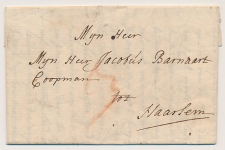 Mijn Heer
Mijn Heer Jacobus Barnaart
Coopman
tot
Haarlem